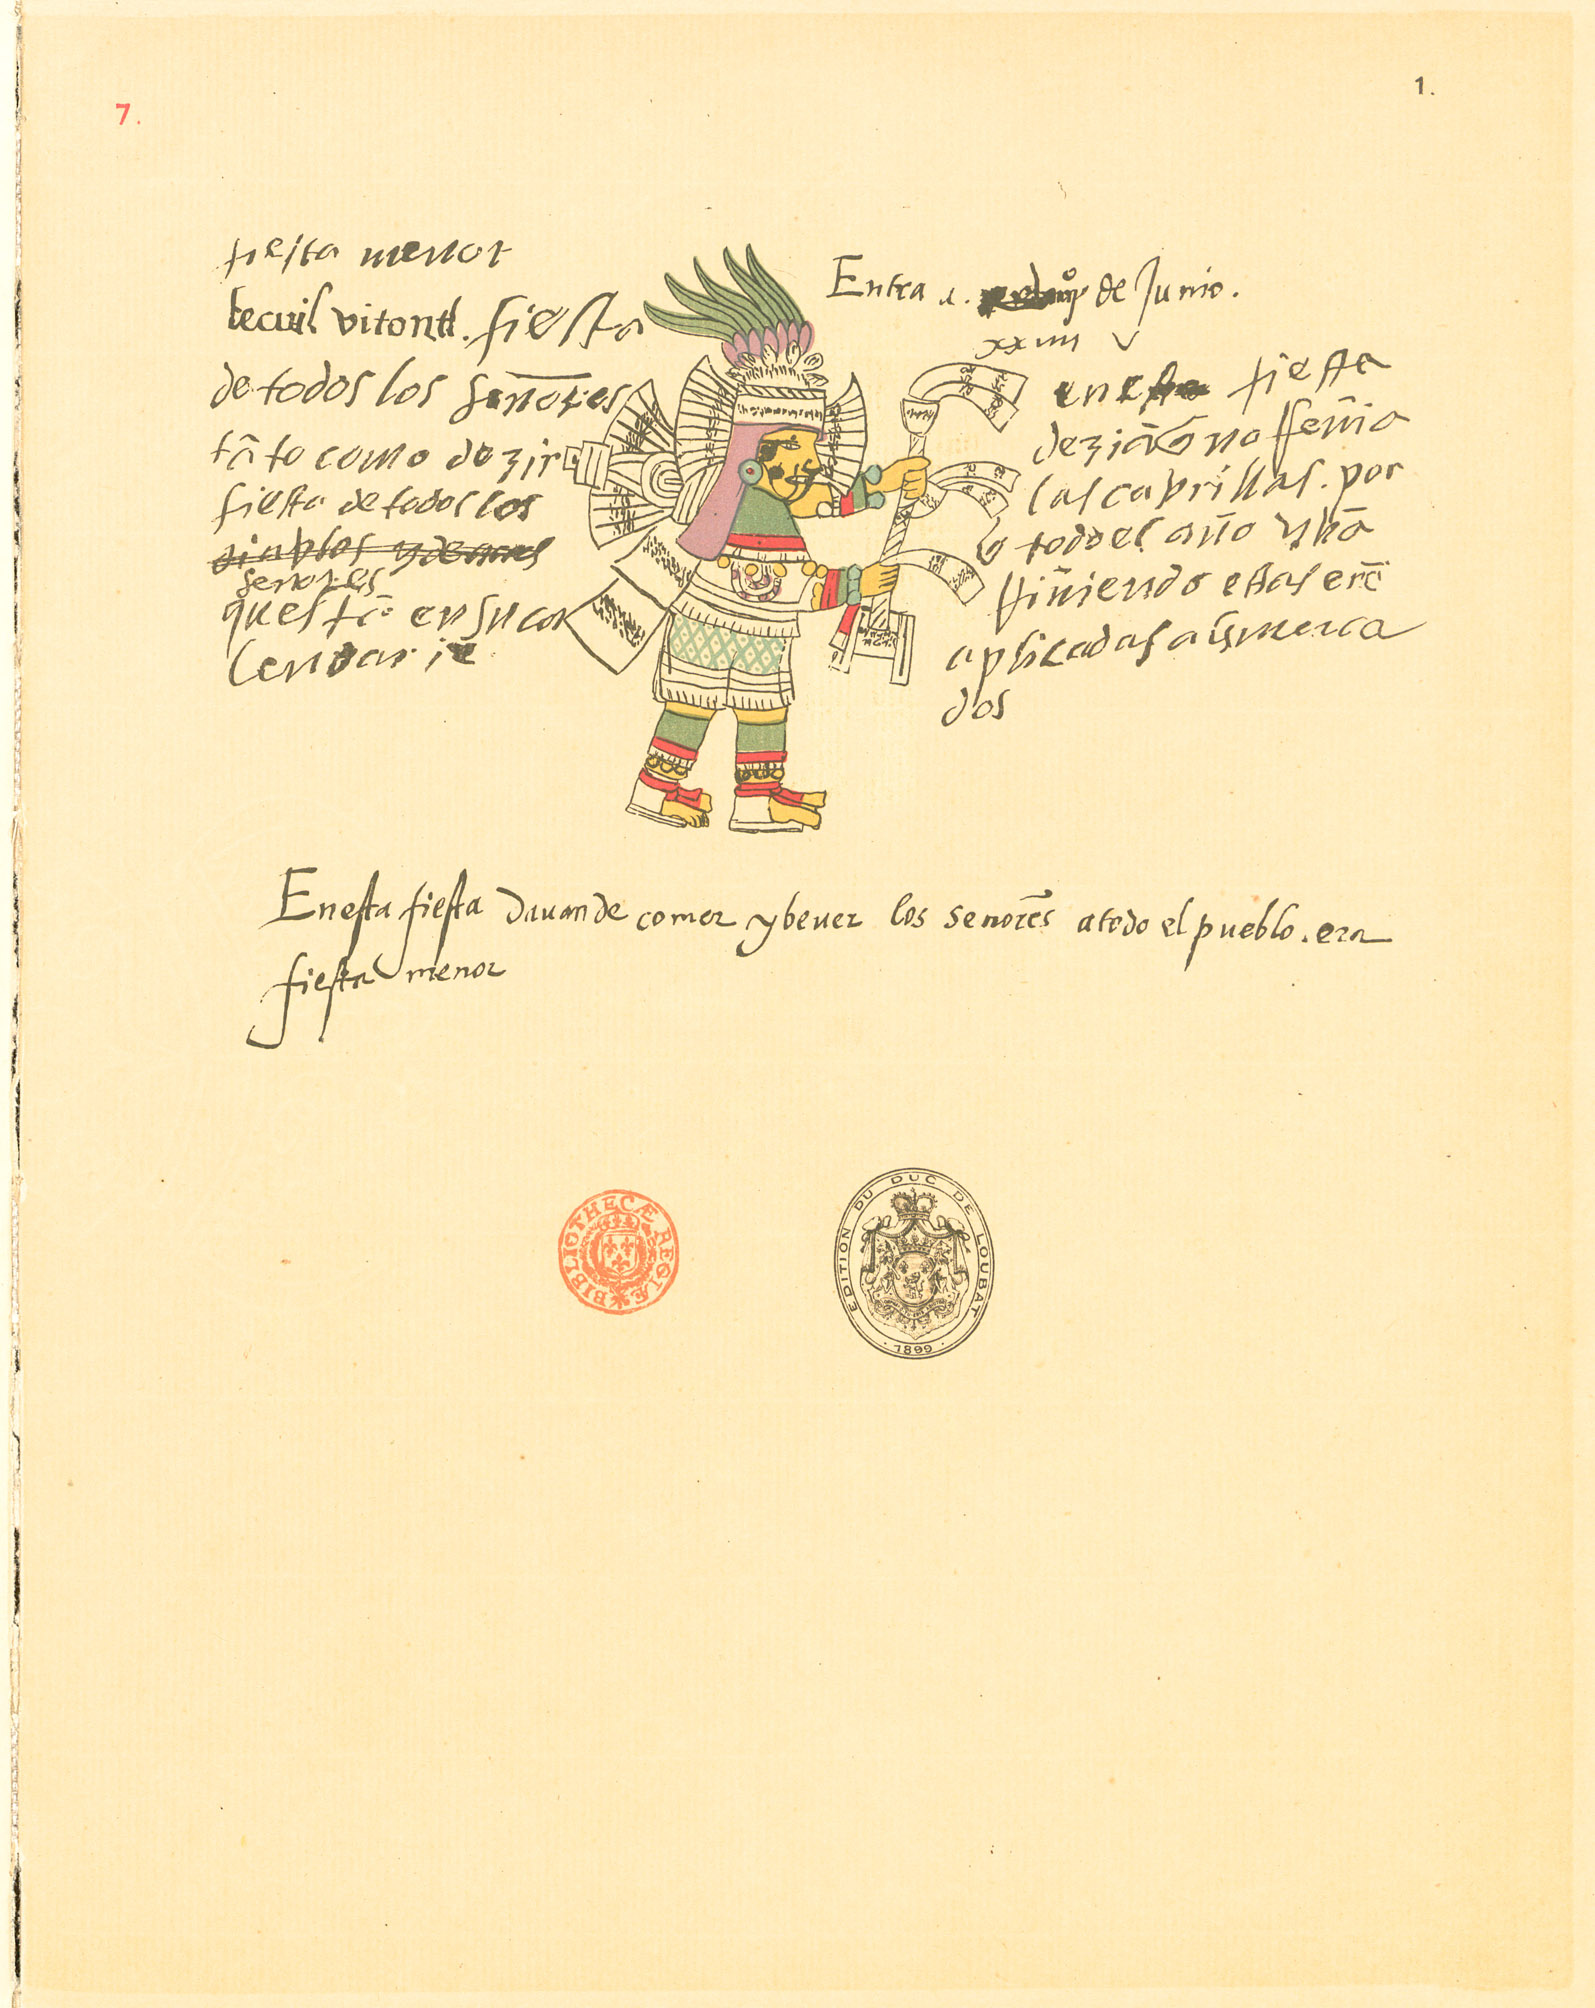 7.
1.
fiesta menor
tecuil vitontl. fiesta
de todos los señores
tãto como dezir
fiesta de todos los
sinples y de mas
señores
que estã en su ca
lendario
Entra a. de Junio.
xxiiii
en esta fiesta
deziã q̃ no se vẽia
las cabrillas. por
q̃ todo el año yhã
finiendo estas erã
aplicadas a los merca
dos
En esta fiesta dauan de comer y beuer los senores a todo el pueblo. era
fiesta menor
BIBLIOTHECÆ REGIÆ
EDITION DU DUC DE LOUBAT
· 1899 ·